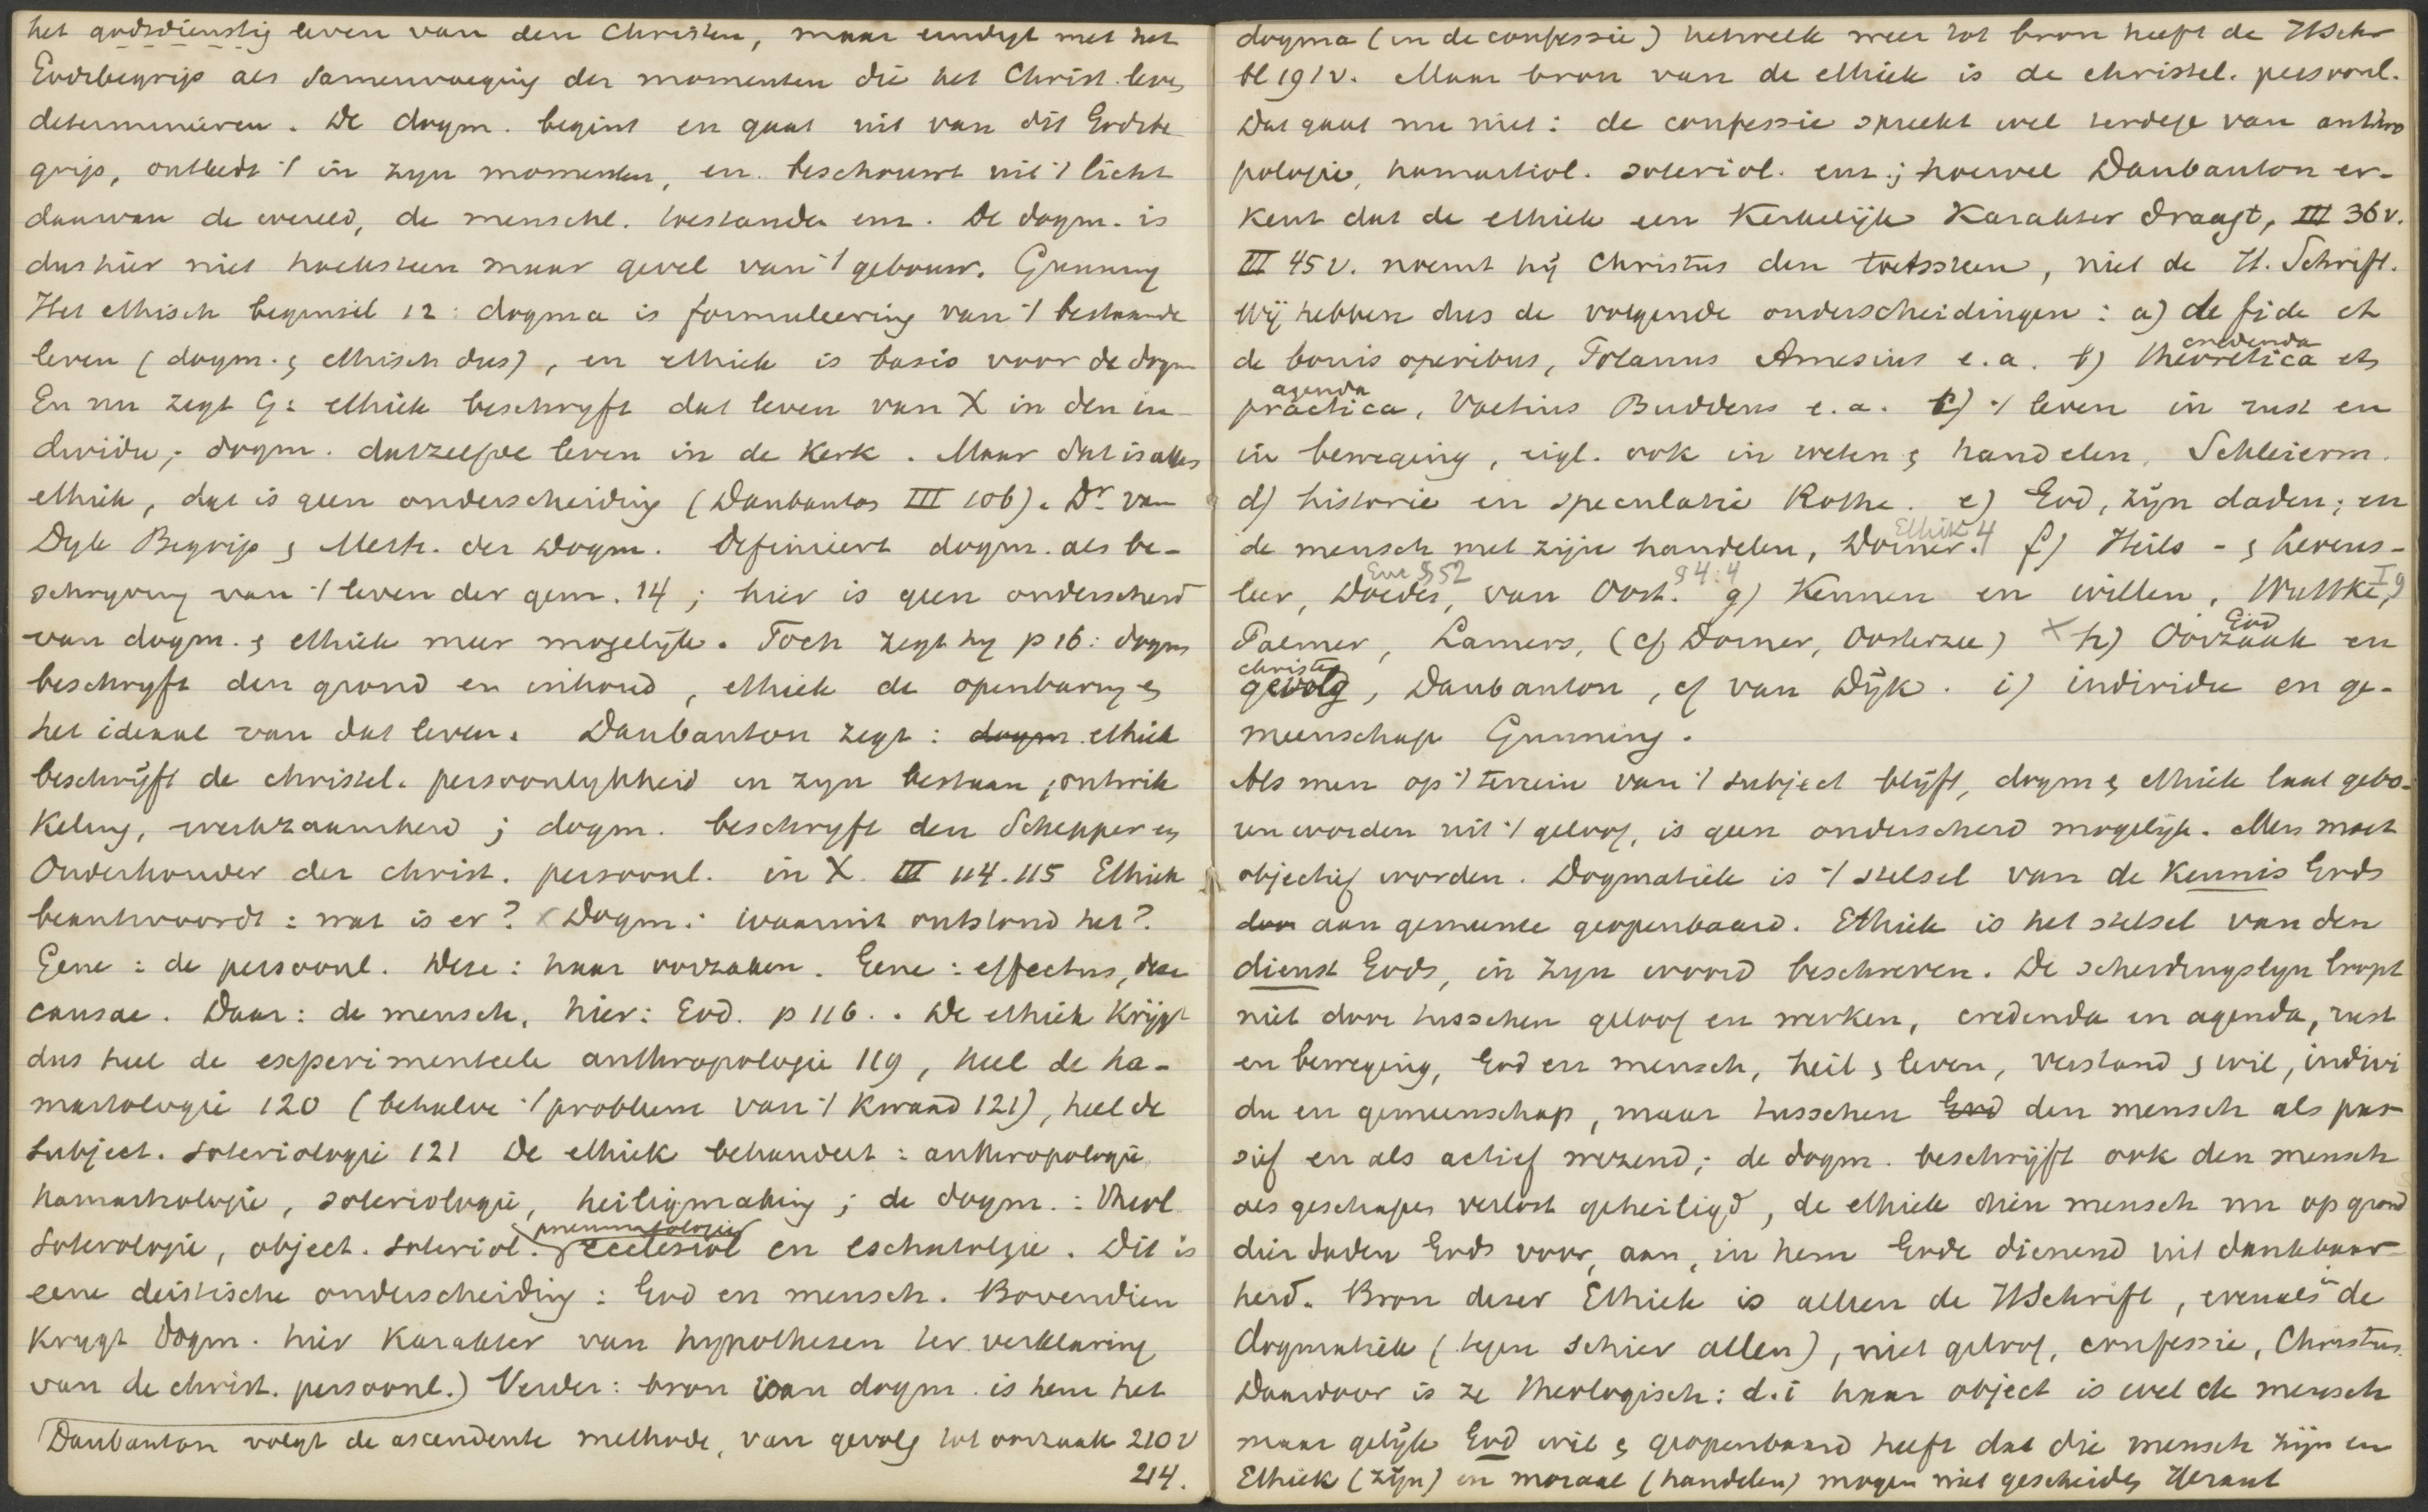 het godsdienstig leven van den Christen, maar eindigt met het
Godsbegrip als samenvoeging der momenten die het Christ. leven
determineeren. De dogm. begint en gaat uit van dit Godsbe
grip, ontleedt 't in zyn momenten, en beschouwt uit 't licht
daarvan de wereld, de menschl. toestanden enz. De dogm. is
dus hier niet hoeksteen maar gevel van 't gebouw. Gunning
Het ethisch beginsel 12: dogma is formuleering van 't bestaande
leven (dogm. is ethisch dus), en ethiek is basis voor de dogm
En nu zegt G: ethiek beschryft dat leven van X in den in-
dividu; dogm. datzelfde leven in de Kerk. Maar dat is alles
ethiek, dat is geen onderscheiding (Daubanton III 106). Dr van
Dyk Begrip & Meth. der Dogm. definieert dogm. als be-
schryving van 't leven der gem. 14; hier is geen onderscheid
van dogm. & ethiek meer mogelijk. Toch zegt hy p 16: dogm
beschryft den grond en inhoud, ethiek de openbaring en
het ideaal van dat leven. Daubanton zegt: dogm ethiek
beschrijft de christel. persoonlykheid in zyn bestaan, ontwik
keling, werkzaamheid; dogm. beschryft den Schepper en
Onderhouder der christ. persoonl. in X. III 114.115 Ethiek
beantwoordt: wat is er? Dogm: waaruit ontstond het?
Gene: de persoonl. deze: haar oorzaken. Gene: effectus, deze
causae. Daar: de mensch, hier: God. p 116.. De ethiek Krijgt
dus heel de experimenteele anthropologie 119, heel de ha-
martologie 120 (behalve 't probleem van 't Kwaad 121), heel de
subject. soteriologie 121 De ethiek behandelt: anthropologie
hamartologie, soteriologie, heiligmaking; de dogm.: theol
pneumatologie
soterologie, object. soteriol. ecclesiol en eschatologie. Dit is
eene deistische onderscheiding: God en mensch. Bovendien
krygt dogm. hier Karakter van hypothesen ter verklaring
van de christ. persoonl.) Verder: bron van dogm. is hem het
Daubanton volgt de ascendente methode, van gevolg tot oorzaak 210 v
214.
dogma (in de confessie) hetwelk weer tot bron heeft de HSchr
bl 191v. Maar bron van de ethiek is de christel. persoonl.
Dat gaat nu niet: de confessie spreekt wel terdege van anthro
pologie, hamartiol. soteriol. enz.; hoewel Daubanton er-
kent dat de ethiek een Kerkelijk Karakter draagt, III 36v.
III 45v. noemt hij Christus den toetssteen, niet de H. Schrift.
Wij hebben dus de volgende onderscheidingen: a) de fide et
credenda
de bonis operibus, Polanus Amesius e.a. b) theoretica et
agenda
practica, Voetius Buddeus e.a. c) 't leven in rust en
in beweging, eigl. ook in weten & handelen, Schleierm.
d) historie en speculatie Rothe. e) God, zijn daden; en
Ethik 4
de mensch met zijn handelen, Dorner. f) Heils- & levens-
Enc §52 §4:4 I 9
leer, Doedes, van Oost. g) Kennen en willen, Wuttke,
God
Palmer, Lamers, (cf Dorner, Oosterzee) h) Oorzaak en
christen
gevolg, Daubanton, cf van Dijk. i) individu en ge-
meenschap Gunning.
Als men op 't terrein van 't subject blijft, dogm & ethiek laat gebo-
ren worden uit 't geloof, is geen onderscheid mogelijk. Alles moet
objectief worden. Dogmatiek is 't stelsel van de Kennis Gods
door aan gemeente geopenbaard. Ethiek is het stelsel van den
dienst Gods, in zyn woord beschreven. De scheidingslyn loopt
niet door tusschen geloof en werken, credenda en agenda, rust
en beweging, God en mensch, heil & leven, verstand & wil, indivi
du en gemeenschap, maar tusschen God den mensch als pas-
sief en als actief wezend; de dogm. beschrijft ook den mensch
als geschapen verlost geheiligd, de ethiek dien mensch nu op grond
dier daden Gods voor, aan, in hem Gode dienend uit dankbaar-
in
heid. Bron dezer Ethiek is alleen de HSchrift, evenals de
dogmatiek (tegen schier allen), niet geloof, confessie, Christus.
Daardoor is ze theologisch: d.i haar object is wel de mensch
maar gelijk God wil & geopenbaard heeft dat die mensch zijn en
Ethiek (zijn) en moraal (handelen) mogen niet gescheiden